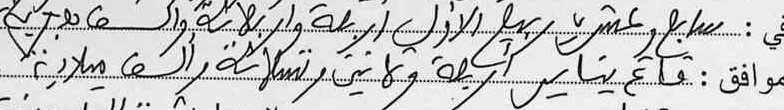 في : سابع وعشرين ربيع الاول اربعة واربعمائة وألف هجرية
موافق : فاتح يناير أربعة وثمانين وتسعمائة وألف ميلادية